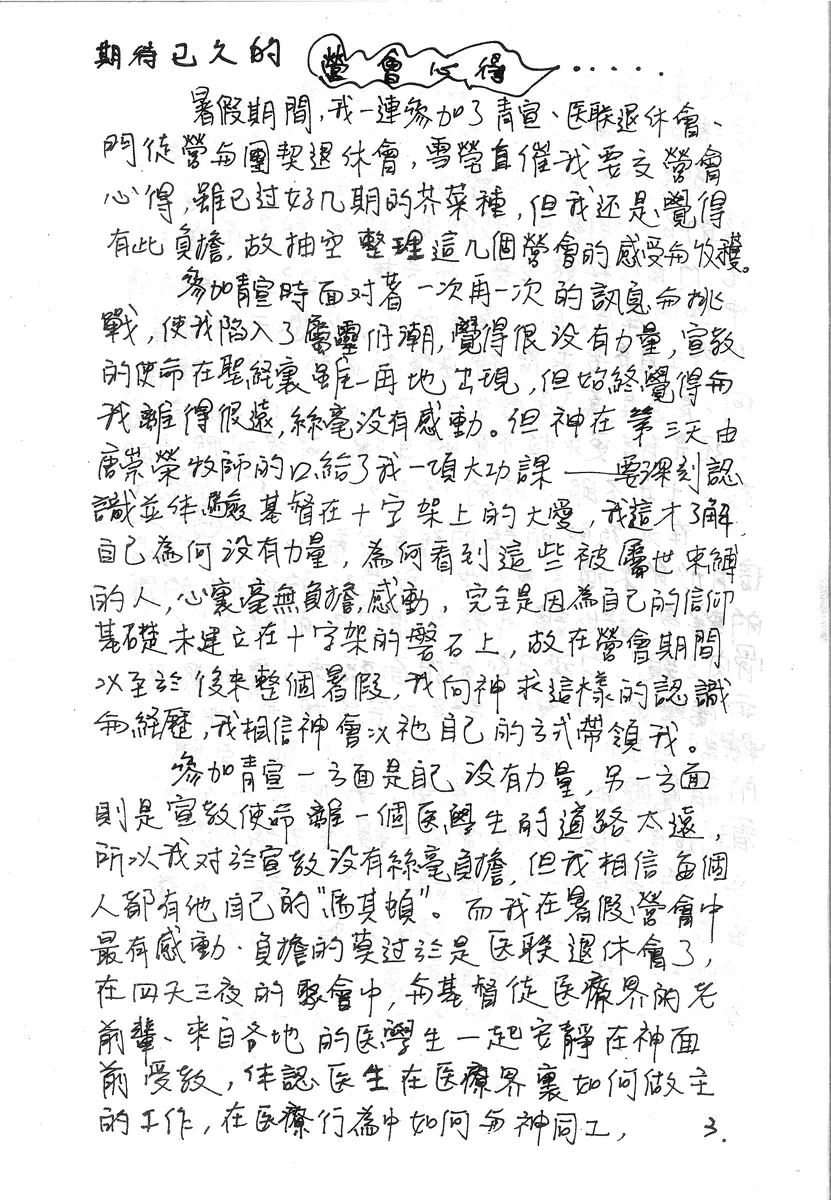 期待已久的 營會心得......
暑假期間,我一連參加了青宣、医联退休會、
門徒營与團契退休會,雪瑩直催我要交營會
心得,雖已过好几期的芥菜種,但我还是覺得
有此負擔,故抽空整理這几個營會的感受与收穫。
參加青宣時面对著一次再一次的訊息与挑
戰,使我陷入了屬靈低潮,覺得很没有力量,宣教
的使命在聖経裏雖一再地出現,但始終覺得与
我離得很遠,絲毫没有感動。但神在第三天由
唐崇榮牧師的口給了我一項大功課——要深刻認
識並体驗基督在十字架上的大愛,我這才了解,
自己為何没有力量,為何看到這些被屬世束縛
的人,心裏毫無負擔,感動,完全是因為自己的信仰
基礎未建立在十字架的磐石上,故在營會期間
以至於後來整個暑假,我向神求這樣的認識
与経歷,我相信神會以祂自己的方式帶領我。
參加青宣一方面是自己没有力量,另一方面
則是宣教使命離一個医學生的道路太遠,
所以我对於宣教没有絲毫負擔,但我相信每個
人都有他自己的"馬其頓"。而我在暑假營會中
最有感動·負擔的莫过於是医联退休會了,
在四天三夜的聚會中,与基督徒医療界的老
前輩、來自各地的医學生一起安靜在神面
前受教,体認医生在医療界裏如何做主
的工作,在医療行為中如何与神同工, 3.